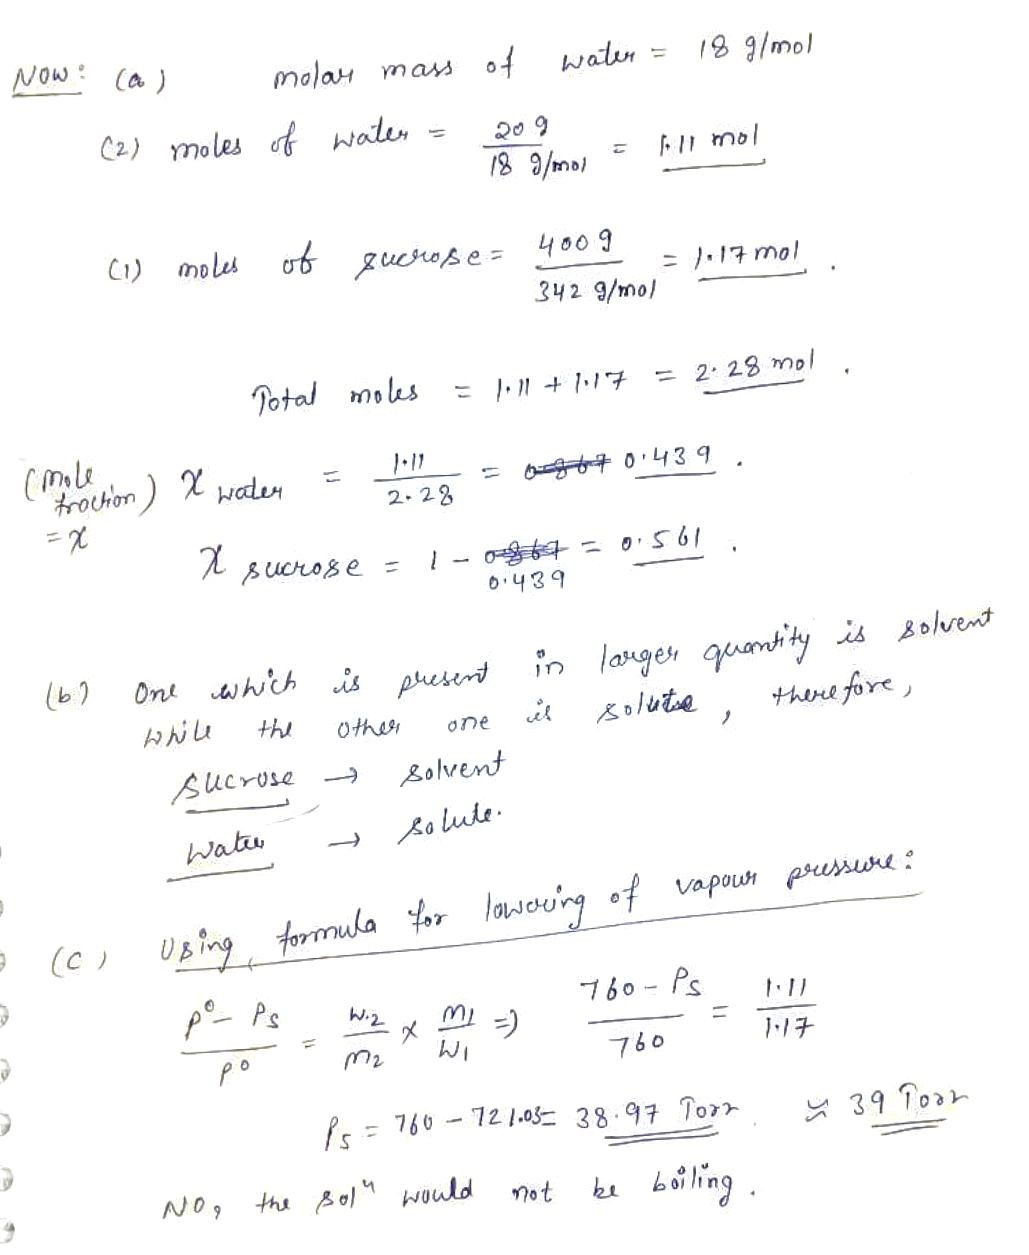 Now: (a) molar mass of water = 18 g/mol
(2) moles of water = 20 g / 18 g/mol = 1.11 mol
(1) moles of sucrose = 400 g / 342 g/mol = 1.17 mol.
Total moles = 1.11 + 1.17 = 2.28 mol.
(mole fraction) = x
x water = 1.11 / 2.28 = 0.867 0.439.
x sucrose = 1 - 0.867 0.439 = 0.561.
(b) One which is present in larger quantity is solvent
while the other one is solute, therefore,
sucrose → solvent
water → solute.
(c) Using formula for lowering of vapour pressure:
P° - Ps / P° = W2 / m2 × m1 / W1 ⇒ 760 - Ps / 760 = 1.11 / 1.17
Ps = 760 - 721.03 = 38.97 Torr ≈ 39 Torr
No, the solⁿ would not be boiling.